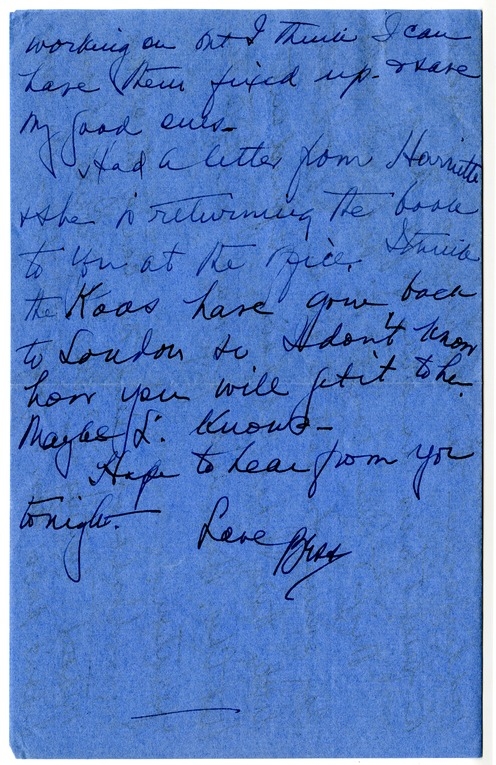 working on but I think I can
have them fixed up - & save
my good ones -
Had a letter from Harriette
& she is returning the book
to you at the office. I think
the Koos have gone back
to London so I don't know
how you will get it to her.
Maybe L. knows -
Hope to hear from you
tonight.
Love Bess